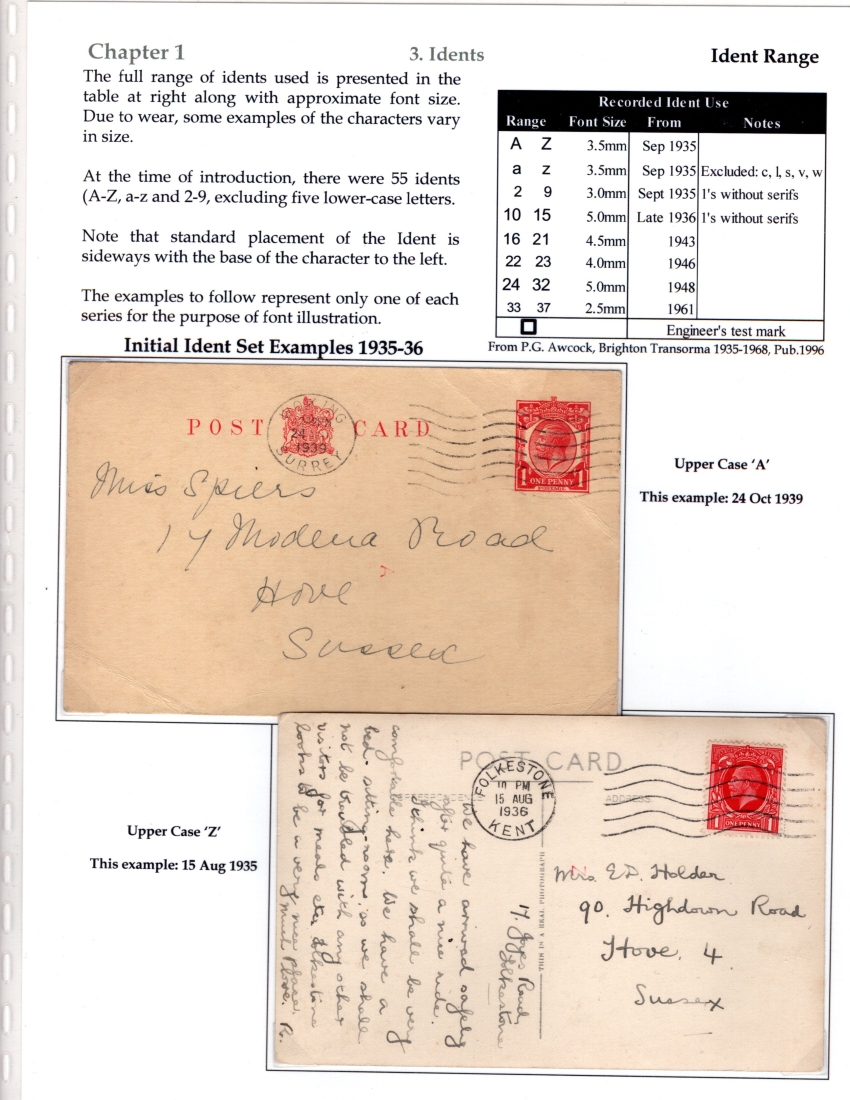 Chapter 1
3. Idents
Ident Range
The full range of idents used is presented in the
table at right along with approximate font size.
Due to wear, some examples of the characters vary
in size.
At the time of introduction, there were 55 idents
(A-Z, a-z and 2-9, excluding five lower-case letters.
Note that standard placement of the Ident is
sideways with the base of the character to the left.
The examples to follow represent only one of each
series for the purpose of font illustration.
Recorded Ident Use
Range Font Size From Notes
A Z 3.5mm Sep 1935
a z 3.5mm Sep 1935 Excluded: c, l, s, v, w
2 9 3.0mm Sept 1935 1's without serifs
10 15 5.0mm Late 1936 1's without serifs
16 21 4.5mm 1943
22 23 4.0mm 1946
24 32 5.0mm 1948
33 37 2.5mm 1961
Engineer's test mark
From P.G. Awcock, Brighton Transorma 1935-1968, Pub.1996
Initial Ident Set Examples 1935-36
POST CARD
DORKING
24
1939
SURREY
1 ONE PENNY 1
Miss Spiers
17 Modena Road
Hove
Sussex
Upper Case 'A'
This example: 24 Oct 1939
Upper Case 'Z'
This example: 15 Aug 1935
POST CARD
FOLKESTONE
10 PM
15 AUG
1936
KENT
ADDRESS
1 ONE PENNY 1
THIS IS A REAL PHOTOGRAPH
17, Joyes Road,
Folkestone
We have arrived safely
after quite a nice ride.
I think we shall be very
comfortable here. We have a
bed-sitting-room, so we shall
not be troubled with any other
visitors for meals etc. Folkestone
looks to be a very nice place.
Much Love. R.
Mrs. E.D. Holder
90. Highdown Road
Hove. 4.
Sussex